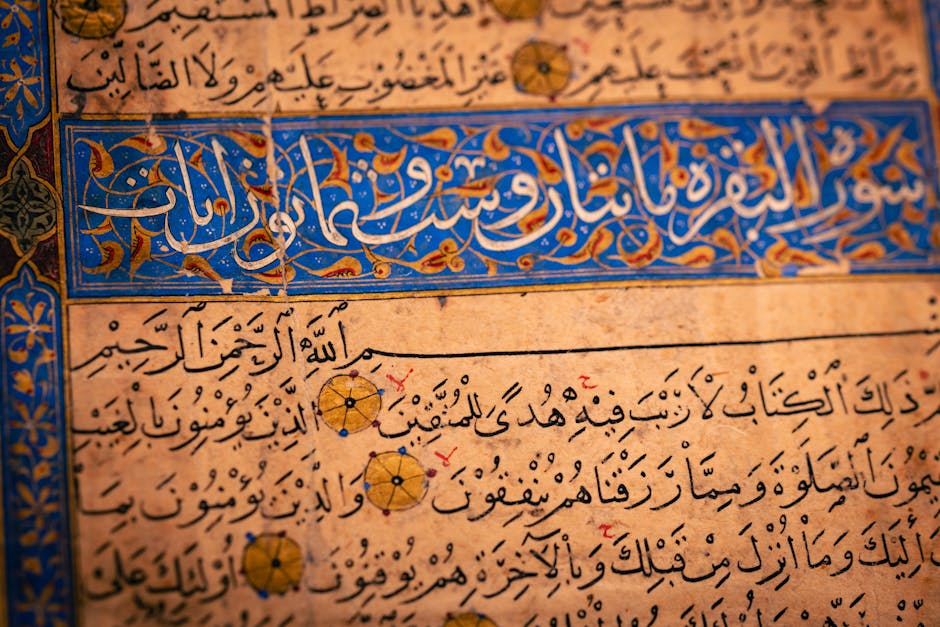 اهْدِنَا الصِّرَاطَ الْمُسْتَقِيمَ
صِرَاطَ الَّذِينَ أَنْعَمْتَ عَلَيْهِمْ غَيْرِ الْمَغْضُوبِ عَلَيْهِمْ وَلَا الضَّالِّينَ
سورة البقرة مايتان وست وثمانون ايات
بِسْمِ اللَّهِ الرَّحْمَٰنِ الرَّحِيمِ
ذَلِكَ الْكِتَابُ لَا رَيْبَ فِيهِ هُدًى لِلْمُتَّقِينَ الَّذِينَ يُؤْمِنُونَ بِالْغَيْبِ
الصَّلَوةَ وَمِمَّا رَزَقْنَاهُمْ يُنْفِقُونَ وَالَّذِينَ يُؤْمِنُونَ بِمَا
إِلَيْكَ وَمَا أُنْزِلَ مِنْ قَبْلِكَ وَبِالْآخِرَةِ هُمْ يُوقِنُونَ أُولَئِكَ عَلَى